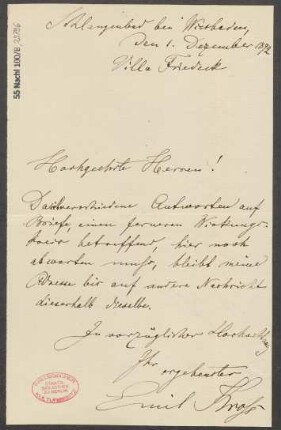 Schlangenbad bei Wiesbaden,
den 1. Dezember 1892
Villa Friedeck
Hochgeehrte Herren!
Da verschiedene Antworten auf
Briefe, einen ferneren Wirkungs-
kreis betreffend, hier noch
abwarten muss, bleibt meine
Adresse bis auf andere Nachricht
dieserhalb dieselbe.
In vorzüglicher Hochachtung
Ihr
ergebenster
Emil
55 Nachl 100/B